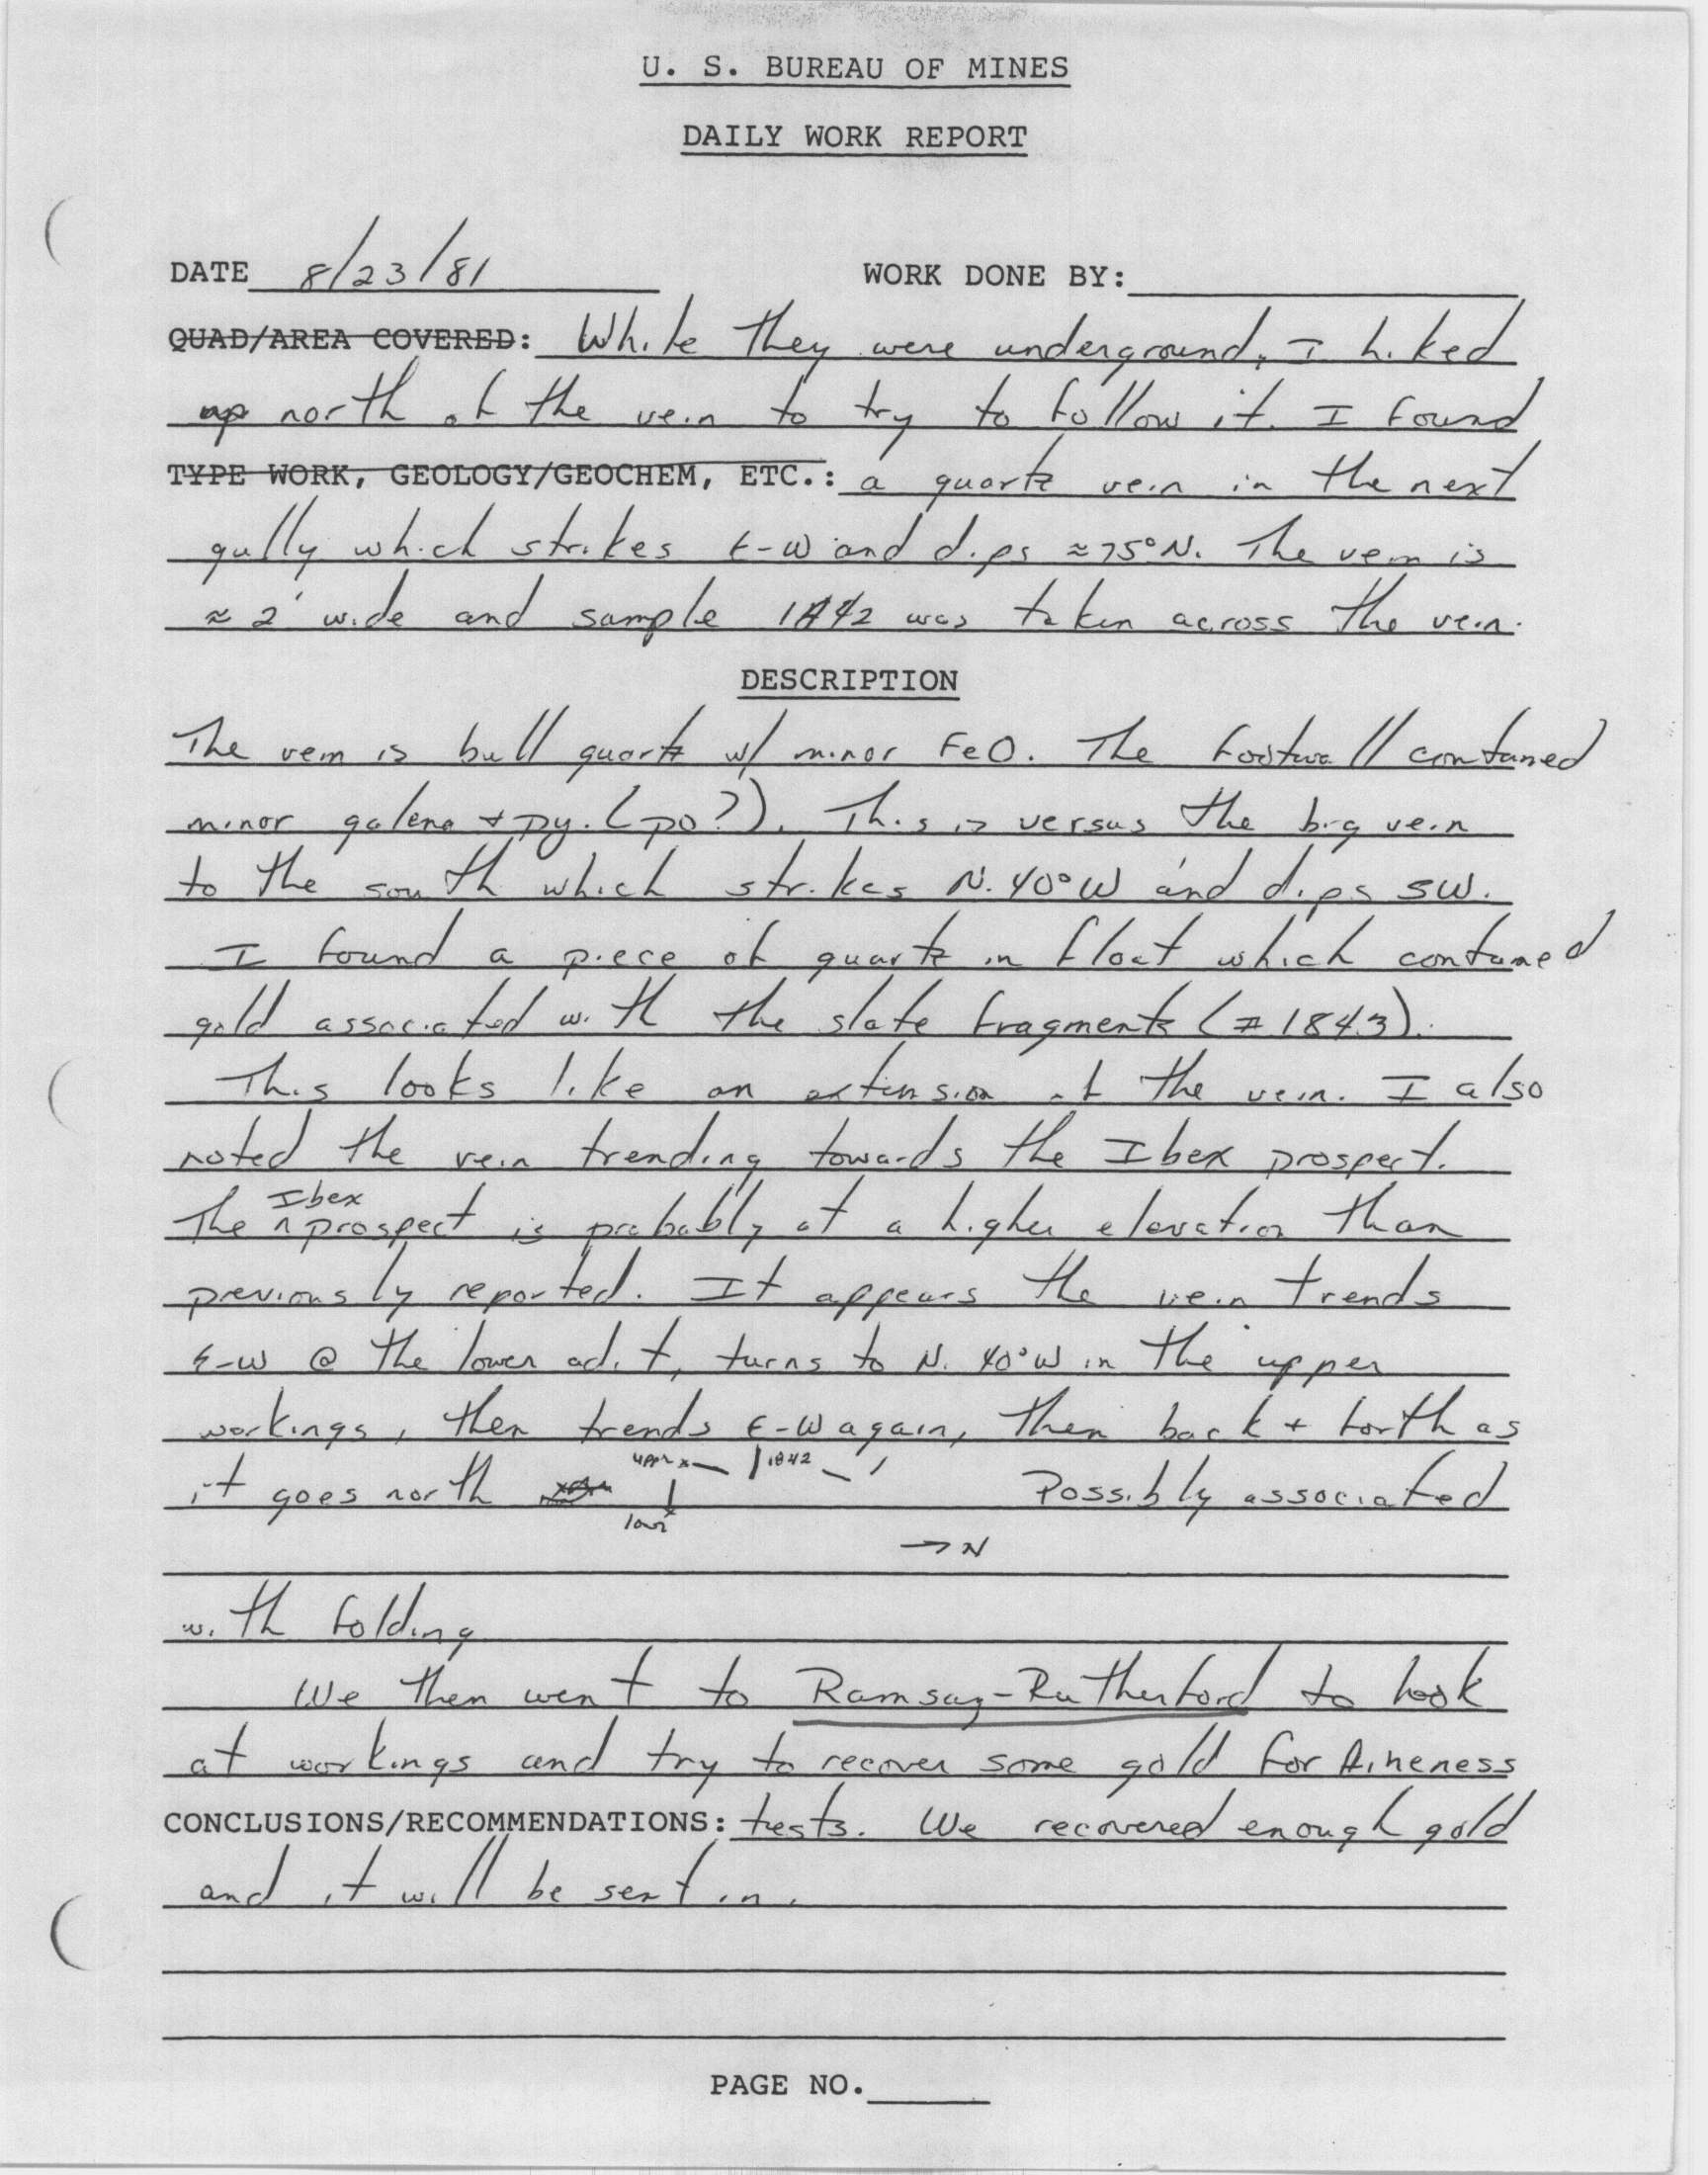 U. S. BUREAU OF MINES
DAILY WORK REPORT
DATE 8/23/81 WORK DONE BY:
QUAD/AREA COVERED: While they were underground, I hiked
up north of the vein to try to follow it. I found
TYPE WORK, GEOLOGY/GEOCHEM, ETC.: a quartz vein in the next
gully which strikes E-W and dips ≈75°N. The vein is
≈ 2' wide and sample 1842 was taken across the vein.
DESCRIPTION
The vein is bull quartz w/ minor FeO. The footwall contained
minor galena + py. (po?). This is versus the big vein
to the south which strikes N. 40°W and dips SW.
I found a piece of quartz in float which contained
gold associated with the slate fragments (# 1843).
This looks like an extension of the vein. I also
noted the vein trending towards the Ibex prospect.
The ^Ibex prospect is probably at a higher elevation than
previously reported. It appears the vein trends
E-W @ the lower adit, turns to N. 40°W in the upper
workings, then trends E-W again, then back + forth as
it goes north upper 1842 Possibly associated
lower
→ N
with folding
We then went to Ramsay-Rutherford to look
at workings and try to recover some gold for fineness
CONCLUSIONS/RECOMMENDATIONS: tests. We recovered enough gold
and it will be sent in.
PAGE NO.